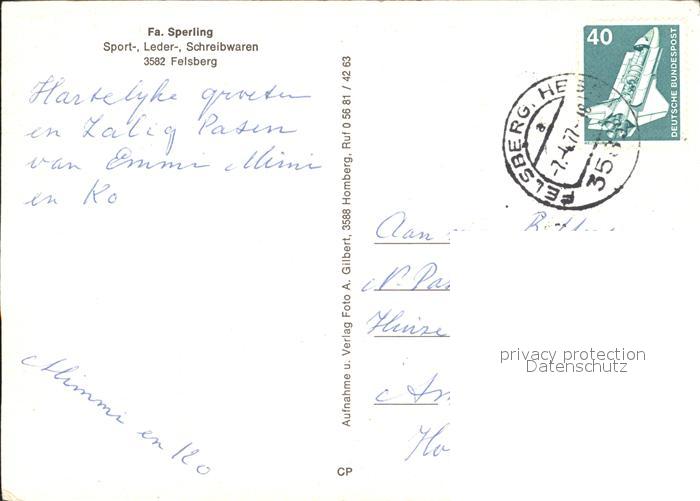 Fa. Sperling
Sport-, Leder-, Schreibwaren
3582 Felsberg
40
DEUTSCHE BUNDESPOST
FELSBERG, HE
a
-7.-4.77-18
35
Hartelyke groeten
en Zalig Pasen
van Emmi Mimi
en Ko
Mimmi en Ko
Aufnahme u. Verlag Foto A. Gilbert, 3588 Homberg, Ruf 0 56 81 / 42 63
Aan
Am
Ho
privacy protection
Datenschutz
CP